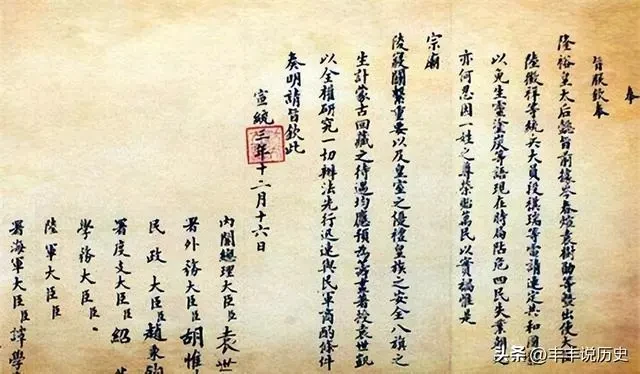 奉
旨朕欽奉
隆裕皇太后懿旨前據岑春煊袁樹勛等暨出使大
陸徵祥等統兵大員段祺瑞等電請速定共和國
以免生靈塗炭等語現在時局阽危四民失業朝
亦何忍因一姓之尊榮貽萬民以實禍惟是
宗廟
陵寢關繫重要以及皇室之優禮皇族之安全八旗之
生計蒙古回藏之待遇均應預為籌畫著授袁世凱
以全權研究一切辦法先行迅速與民軍商酌條件
奏明請旨欽此
宣統三年十二月十六日
內閣總理大臣臣袁世
署外務大臣臣胡惟
民政大臣臣趙秉鈞
署度支大臣臣紹
學務大臣臣
陸軍大臣臣
署海軍大臣臣譚學
头条 @丰丰说历史